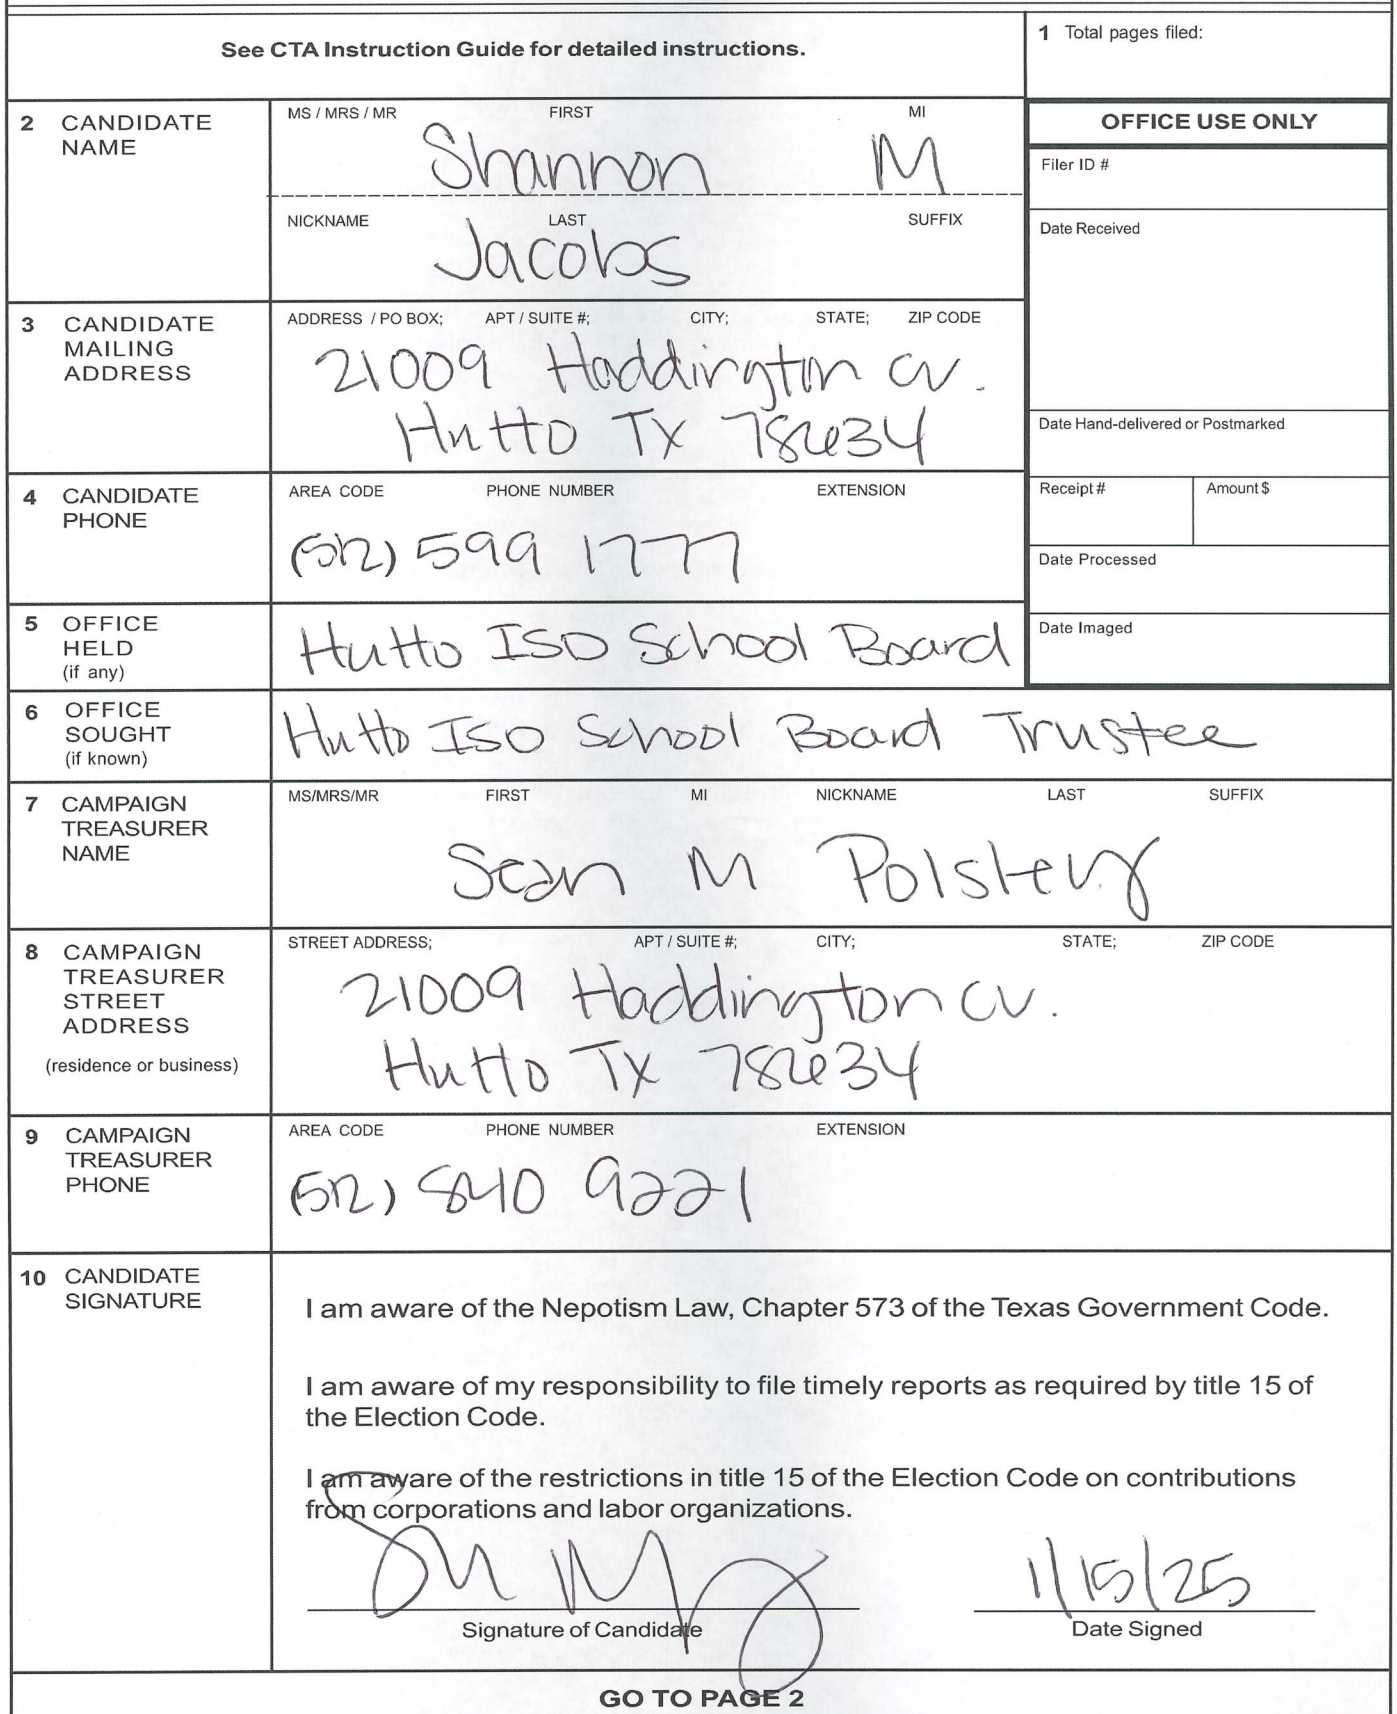 See CTA Instruction Guide for detailed instructions.
1 Total pages filed:
2 CANDIDATE NAME
MS / MRS / MR FIRST MI
Shannon M
NICKNAME LAST SUFFIX
Jacobs
OFFICE USE ONLY
Filer ID #
Date Received
Date Hand-delivered or Postmarked
Receipt # Amount $
Date Processed
Date Imaged
3 CANDIDATE MAILING ADDRESS
ADDRESS / PO BOX; APT / SUITE #; CITY; STATE; ZIP CODE
21009 Haddington cv.
Hutto TX 78634
4 CANDIDATE PHONE
AREA CODE PHONE NUMBER EXTENSION
(512) 599 1777
5 OFFICE HELD (if any)
Hutto ISD School Board
6 OFFICE SOUGHT (if known)
Hutto ISD School Board Trustee
7 CAMPAIGN TREASURER NAME
MS/MRS/MR FIRST MI NICKNAME LAST SUFFIX
Sean M
8 CAMPAIGN TREASURER STREET ADDRESS (residence or business)
STREET ADDRESS; APT / SUITE #; CITY; STATE; ZIP CODE
21009 Haddington cv.
Hutto TX 78634
9 CAMPAIGN TREASURER PHONE
AREA CODE PHONE NUMBER EXTENSION
(512) 840 9221
10 CANDIDATE SIGNATURE
I am aware of the Nepotism Law, Chapter 573 of the Texas Government Code.
I am aware of my responsibility to file timely reports as required by title 15 of
the Election Code.
I am aware of the restrictions in title 15 of the Election Code on contributions
from corporations and labor organizations.
1/15/25
Signature of Candidate Date Signed
GO TO PAGE 2